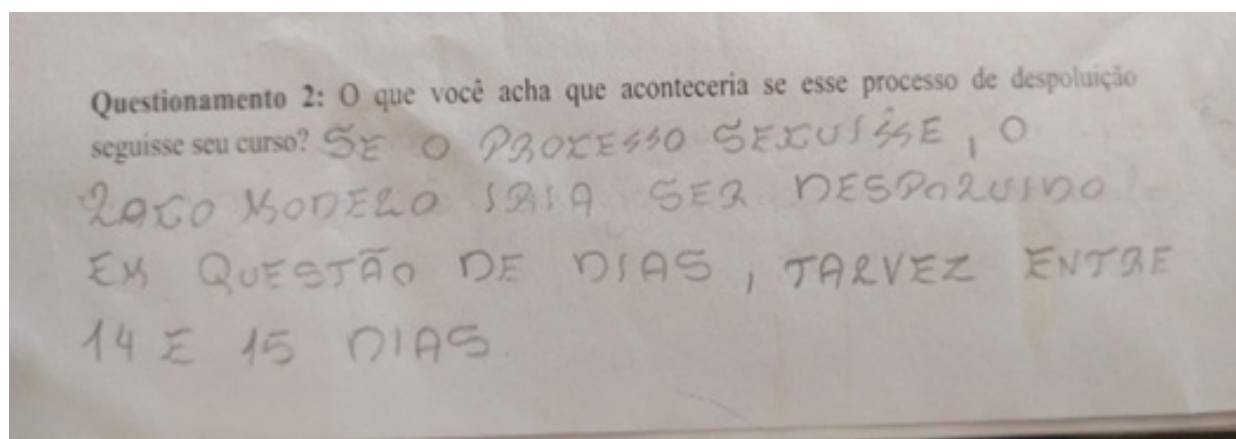 Questionamento 2: O que você acha que aconteceria se esse processo de despoluição
seguisse seu curso? SE O PROCESSO SEGUISSE, O
LAGO MODELO IRIA SER DESPOLUIDO
EM QUESTÃO DE DIAS, TALVEZ ENTRE
14 E 15 DIAS.